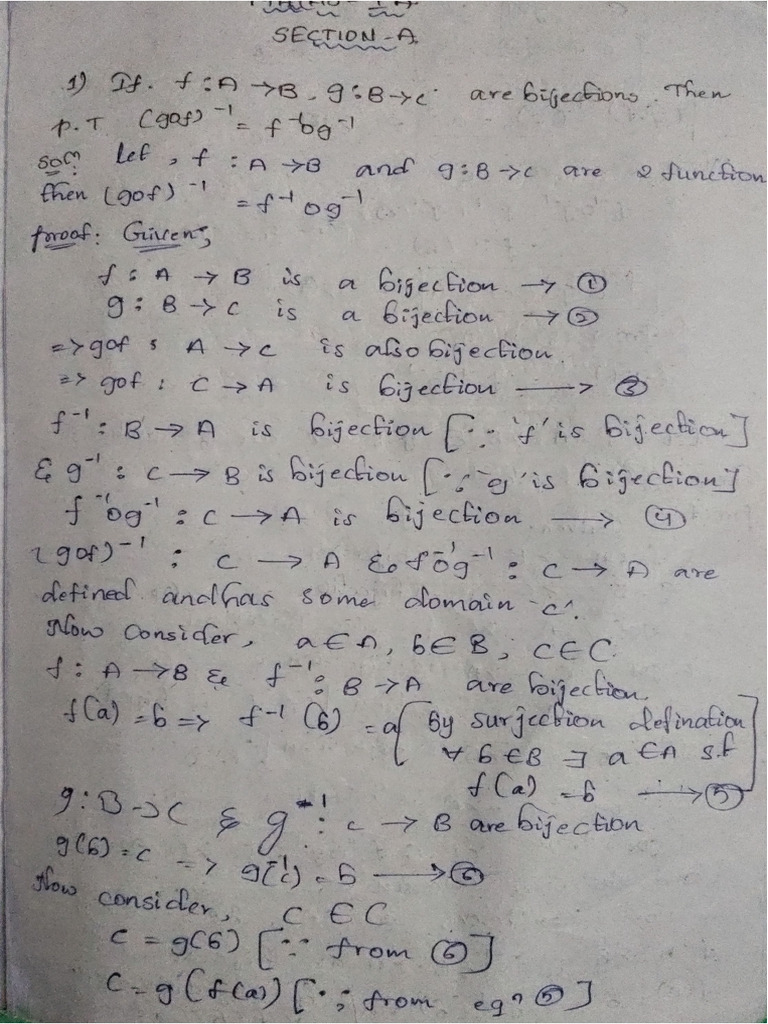 SECTION-A
1) If. f:A→B, g:B→C are bijections. Then
P.T (gof)⁻¹ = f⁻¹og⁻¹
Soln Let, f:A→B and g:B→C are 2 function
then (gof)⁻¹ = f⁻¹og⁻¹
proof: Given;
f: A → B is a bijection → ①
g: B → C is a bijection → ②
=> gof : A → C is also bijection.
=> gof : C → A is bijection → ③
f⁻¹: B → A is bijection [∵ 'f' is bijection]
& g⁻¹: C → B is bijection [∵ 'g' is bijection]
f⁻¹og⁻¹ : C → A is bijection → ④
(gof)⁻¹ : C → A & f⁻¹og⁻¹ : C → A are
defined and has some domain 'c'.
Now consider, a∈A, b∈B, c∈C
f: A→B & f⁻¹: B→A are bijection.
f(a) = b => f⁻¹(b) = a [By surjection defination
∀ b∈B ∃ a∈A s.t
f(a) = b → ⑤]
g:B→C & g⁻¹: C → B are bijection
g(b) = c => g⁻¹(c) = b → ⑥
Now consider, C ∈ C
c = g(b) [∵ from ⑥]
c = g(f(a)) [∵ from eqn ⑤]